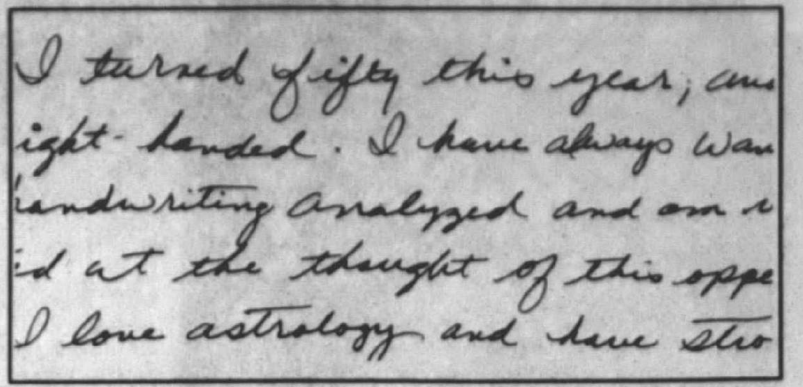 I turned fifty this year, and
ight-handed. I have always wan
handwriting analyzed and am
ed at the thought of this oppo
I love astrology and have stro